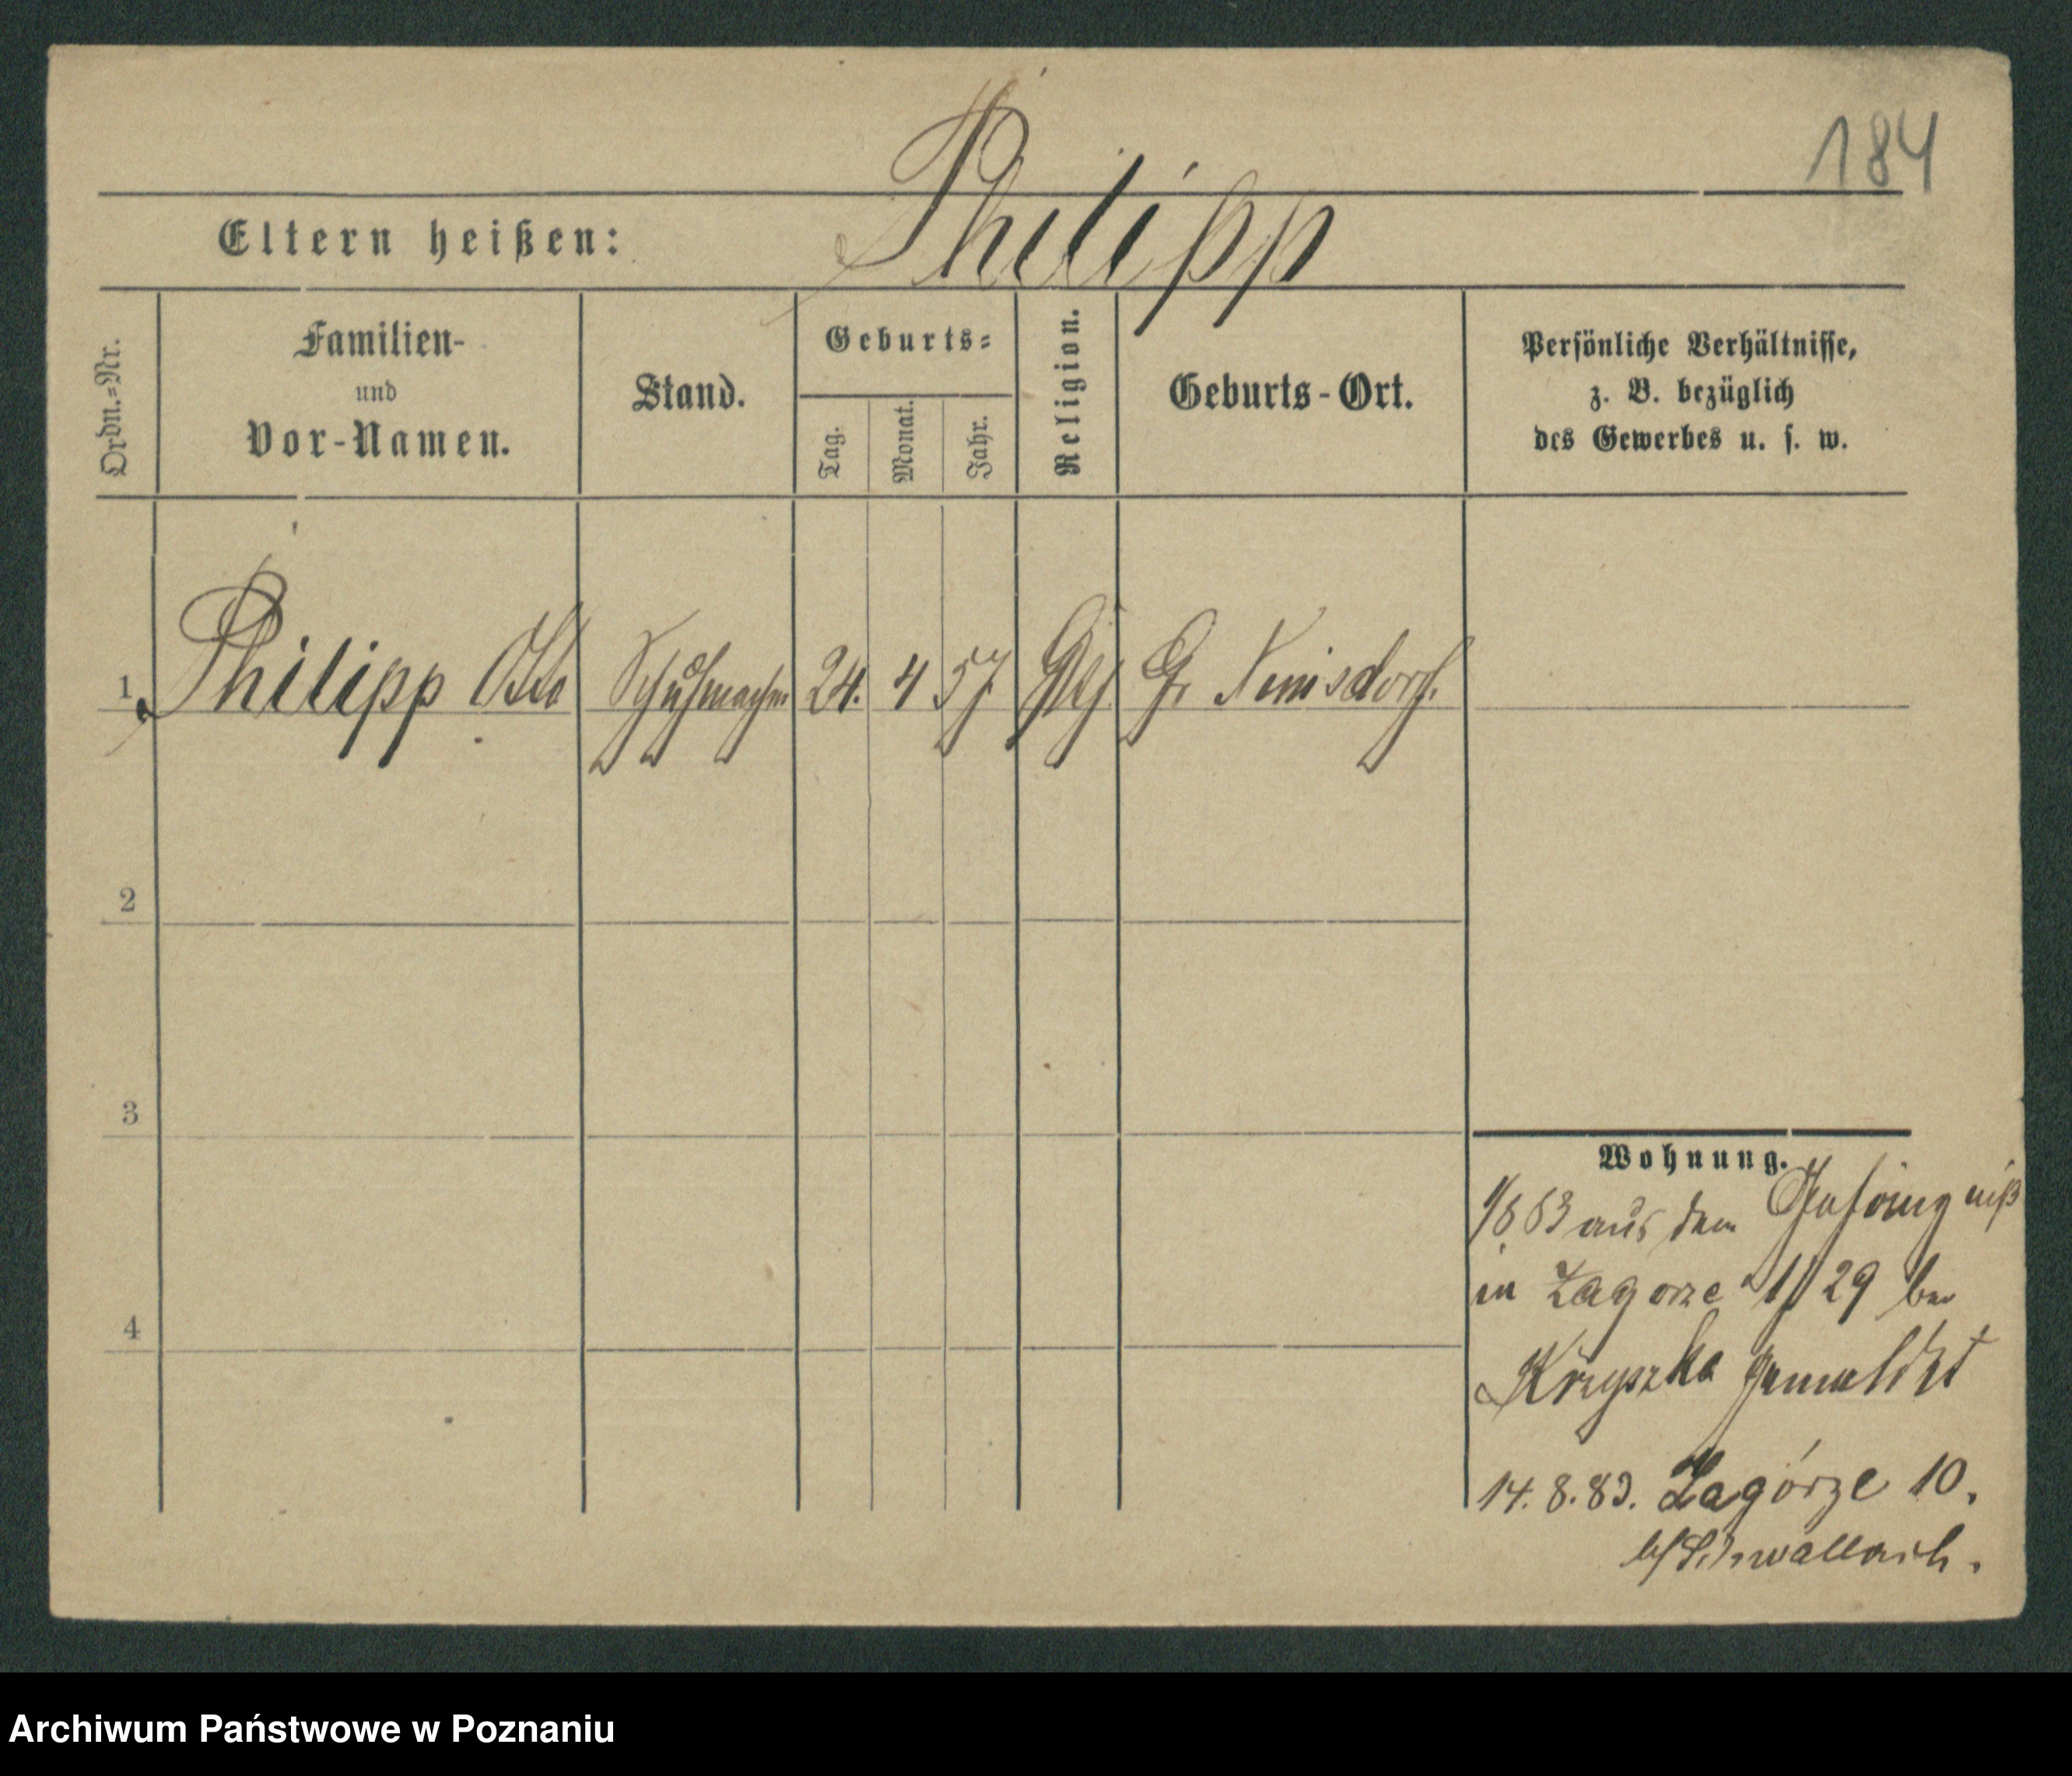 184
Philipp
Eltern heißen:
Ordn.=Nr.
Familien-
und
Vor-Namen.
Stand.
Geburts=
Tag.
Monat.
Jahr.
Religion.
Geburts-Ort.
Persönliche Verhältnisse,
z. B. bezüglich
des Gewerbes u. s. w.
1 Philipp Otto Schuhmacher 24. 4 57 Gr
2
3
4
Wohnung.
83 aus dem Gefängniß
in Zagorze 29 bei
Kryszka gemeldet
14. 8. 83. Zagórze 10.
Archiwum Państwowe w Poznaniu